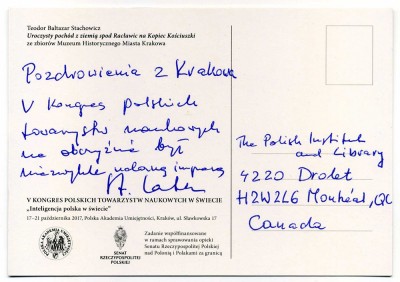 Teodor Baltazar Stachowicz
Uroczysty pochód z ziemią spod Racławic na Kopiec Kościuszki
ze zbiorów Muzeum Historycznego Miasta Krakowa
Pozdrowienia z Krakowa
V Kongres polskich
towarzystw naukowych
na obczyźnie był
niezwykle udaną imprezą
V KONGRES POLSKICH TOWARZYSTW NAUKOWYCH W ŚWIECIE
„Inteligencja polska w świecie"
17-21 października 2017, Polska Akademia Umiejętności, Kraków, ul. Sławkowska 17
SENAT
RZECZYPOSPOLITEJ
POLSKIEJ
Zadanie współfinansowane
w ramach sprawowania opieki
Senatu Rzeczypospolitej Polskiej
nad Polonią i Polakami za granicą
The Polish Institute
and Library
4220 Drolet
H2W2L6 Montréal, QC
Canada